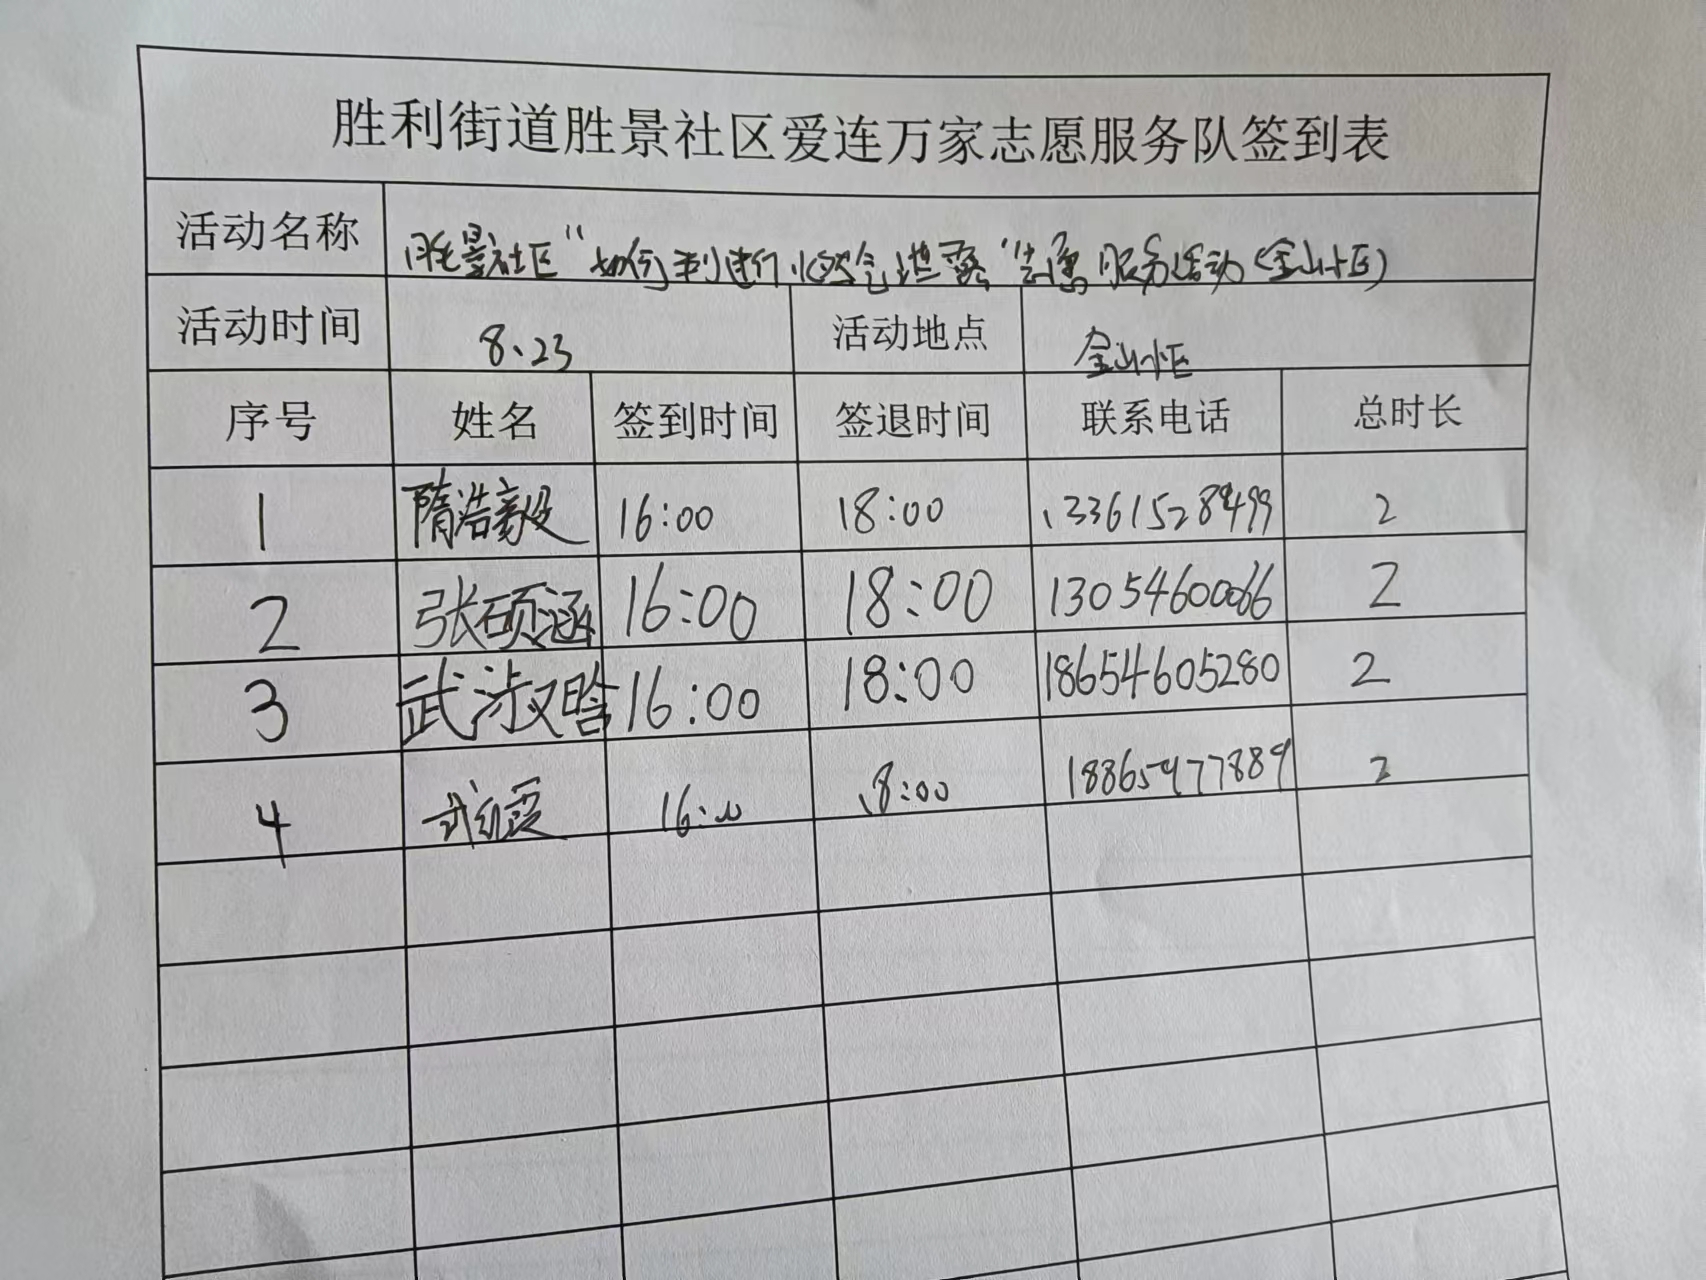 胜利街道胜景社区爱连万家志愿服务队签到表
活动名称 胜景社区“如何判断燃气泄露”志愿服务活动(金山小区)
活动时间 8.23 活动地点 金山小区
序号 姓名 签到时间 签退时间 联系电话 总时长
1 隋浩毅 16:00 18:00 13361528499 2
2 张硕涵 16:00 18:00 13054600066 2
3 武淑晗 16:00 18:00 18654605280 2
4 16:00 18:00 18865477889 2